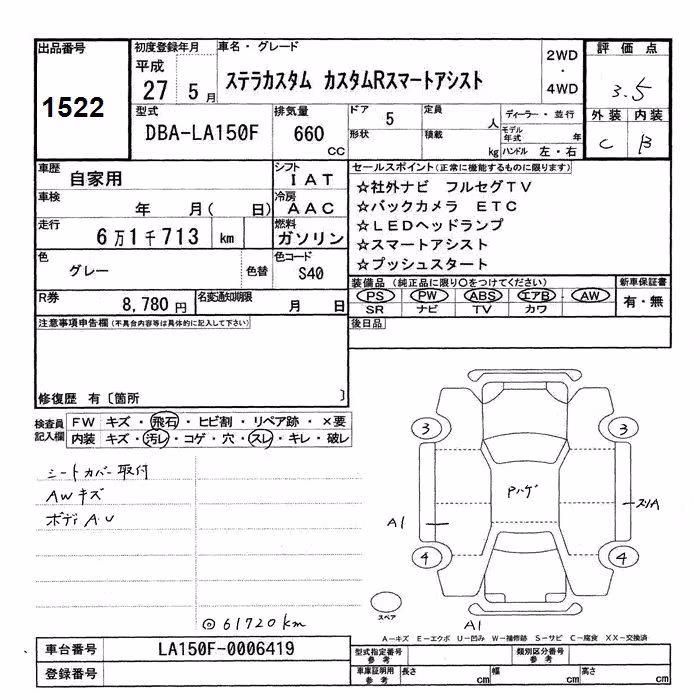 出品番号
1522
初度登録年月
平成
27 5 月
車名・グレード
ステラカスタム カスタムRスマートアシスト
2WD
・
4WD
評価点
3.5
外装 内装
C B
型式
DBA-LA150F
排気量
660
CC
ドア 5
形状
定員 人
積載 kg
ディーラー・並行
モデル年式 年
ハンドル 左・右
車歴
自家用
シフト
IAT
車検
年 月( 日)
冷房
AAC
走行
6万1千713 km
燃料
ガソリン
色
グレー
色替
色コード
S40
R券
8,780 円
名変通知期限
月 日
セールスポイント(正常に機能するものに限ります)
☆社外ナビ フルセグTV
☆バックカメラ ETC
☆LEDヘッドランプ
☆スマートアシスト
☆プッシュスタート
装備品 (純正品に限り○をつけてください)
PS PW ABS エアB AW
SR ナビ TV カワ
新車保証書
有・無
後日品
注意事項申告欄(不具合内容等は具体的に記入して下さい)
修復歴 有〔箇所 〕
検査員
記入欄
FW キズ・飛石・ヒビ割・リペア跡・×要
内装 キズ・汚レ・コゲ・穴・スレ・キレ・破レ
シートカバー取付
AWキズ
ボディA.U
◎61720km
3 3
Pハゲ
スリA
A1
4 4
スペア
A1
A−キズ E−エクボ U−凹み W−補修跡 S−サビ C−腐食 XX−交換済
車台番号 LA150F-0006419
登録番号
型式指定番号
参考
類別区分番号
参考
車庫証明用
参考
長さ cm
幅 cm
高さ cm